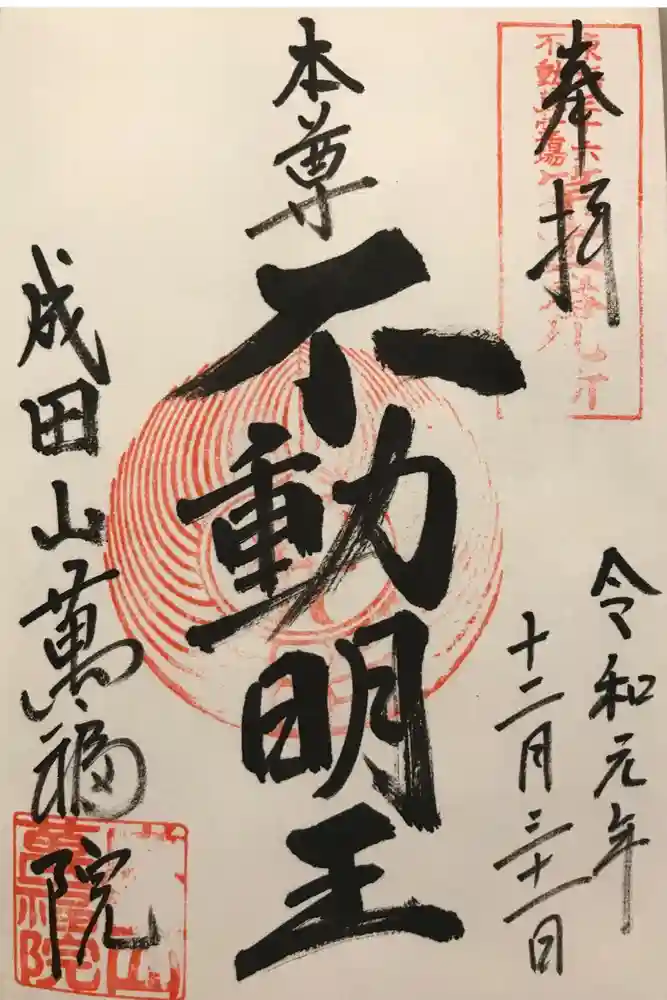 奉拝
令和元年
十二月三十一日
本尊
不動明王
成田山萬福院
不動尊霊場